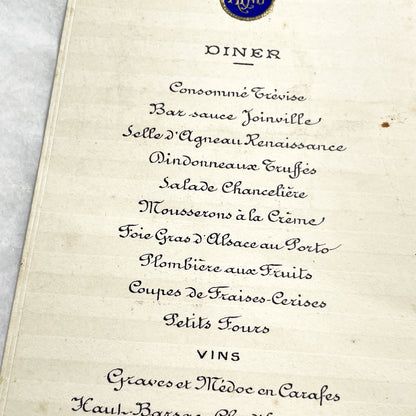 DINER
Consommé Trévise
Bar sauce Joinville
Selle d'Agneau Renaissance
Dindonneaux Truffés
Salade Chancelière
Mousserons à la Crème
Foie Gras d'Alsace au Porto
Plombière aux Fruits
Coupes de Fraises-Cerises
Petits Fours
VINS
Graves et Médoc en Carafes
Haut-Barsac